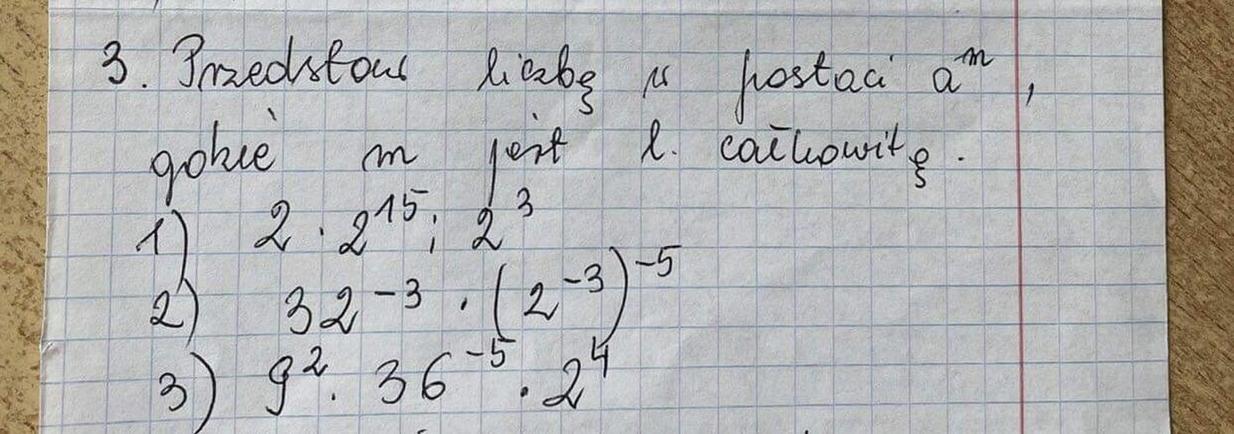 3. Przedstaw liczbę w postaci a^m,
gdzie m jest l. całkowitą.
1) 2 · 2^15 : 2^3
2) 32^-3 · (2^-3)^-5
3) 9^2 · 36^-5 · 2^4